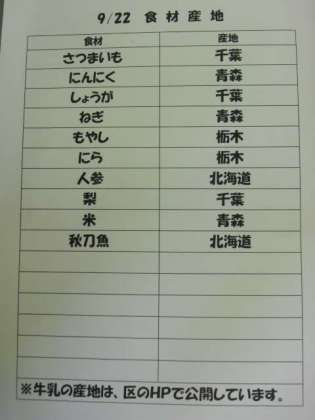 9/22 食材産地
食材 産地
さつまいも 千葉
にんにく 青森
しょうが 千葉
ねぎ 青森
もやし 栃木
にら 栃木
人参 北海道
梨 千葉
米 青森
秋刀魚 北海道
※牛乳の産地は、区のHPで公開しています。